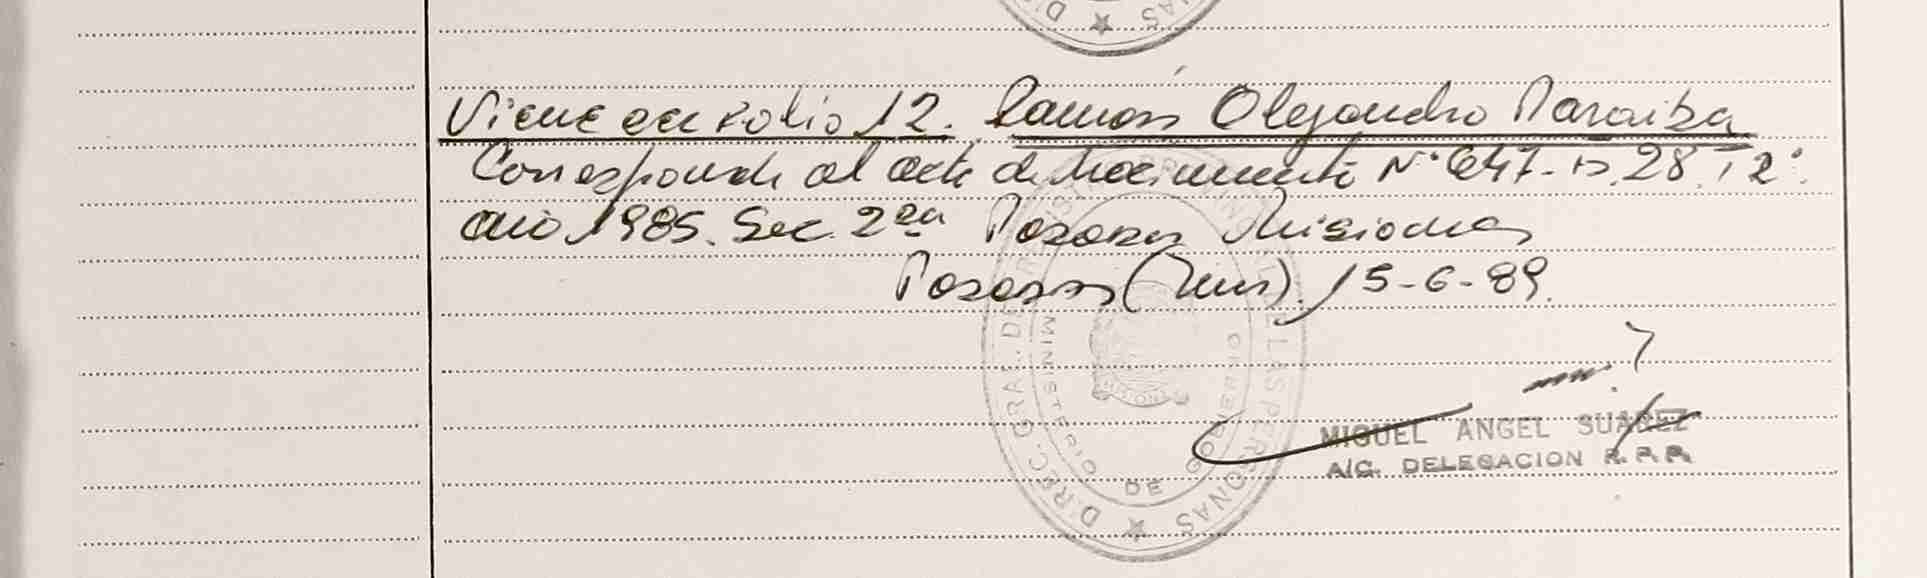 DI ★ SAN
Viene en folio 12. Ramón Alejandro Paraiba
Corresponde al acta de Nacimiento Nº 647- Fº 28. Tº 2º.
año 1985. Sec. 2da Posadas Misiones
Posadas (Mnes). 15-6-89.
DIREC. GRAL. DE REGISTRO PROVINCIAL DE LAS PERSONAS ★
MINISTERIO DE GOBIERNO
MIGUEL ANGEL SUAREZ
A/C. DELEGACION R.P.P.